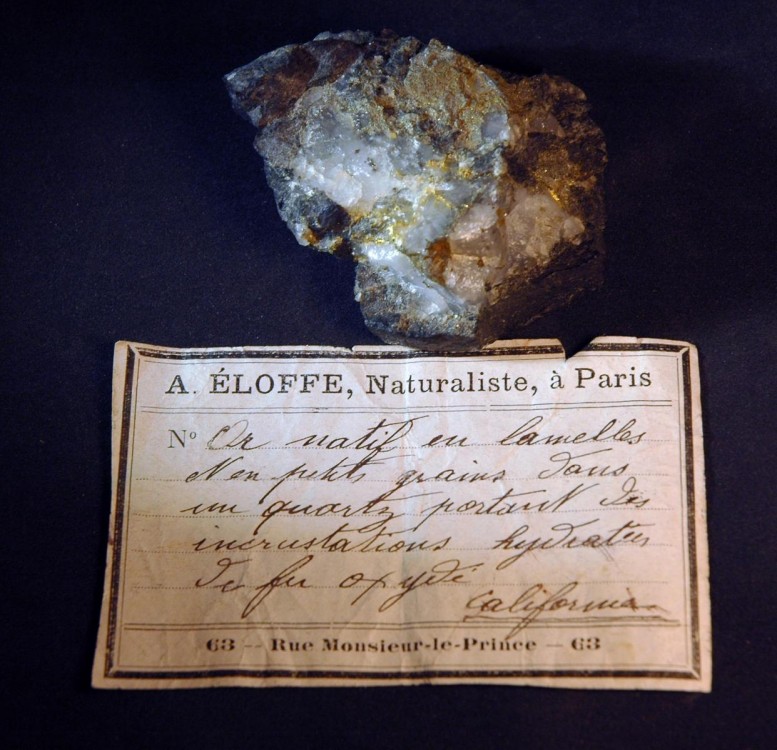 A. ÉLOFFE, Naturaliste, à Paris
Nº Or natif en lamelles
et en petits grains dans
un quartz portant des
incrustations hydratées
de fer oxydé
Californie
63 -- Rue Monsieur-le-Prince - 63